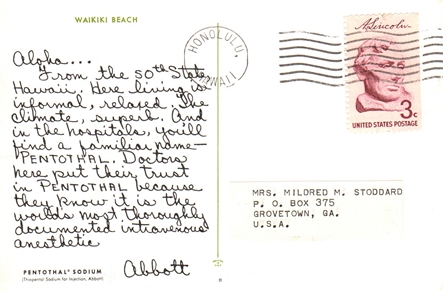 WAIKIKI BEACH
Aloha...
From the 50th State
Hawaii. Here living is
informal, relaxed. The
climate, superb. And
in the hospitals, you'll
find a familiar name—
PENTOTHAL. Doctors
here put their trust
in PENTOTHAL because
they know it is the
world's most thoroughly
documented intravenous
anesthetic
Abbott
PENTOTHAL® SODIUM
(Thiopental Sodium for Injection, Abbott)
HONOLULU,
HAWAII
A. Lincoln
3c
UNITED STATES POSTAGE
MRS. MILDRED M. STODDARD
P. O. BOX 375
GROVETOWN, GA.
U.S.A.